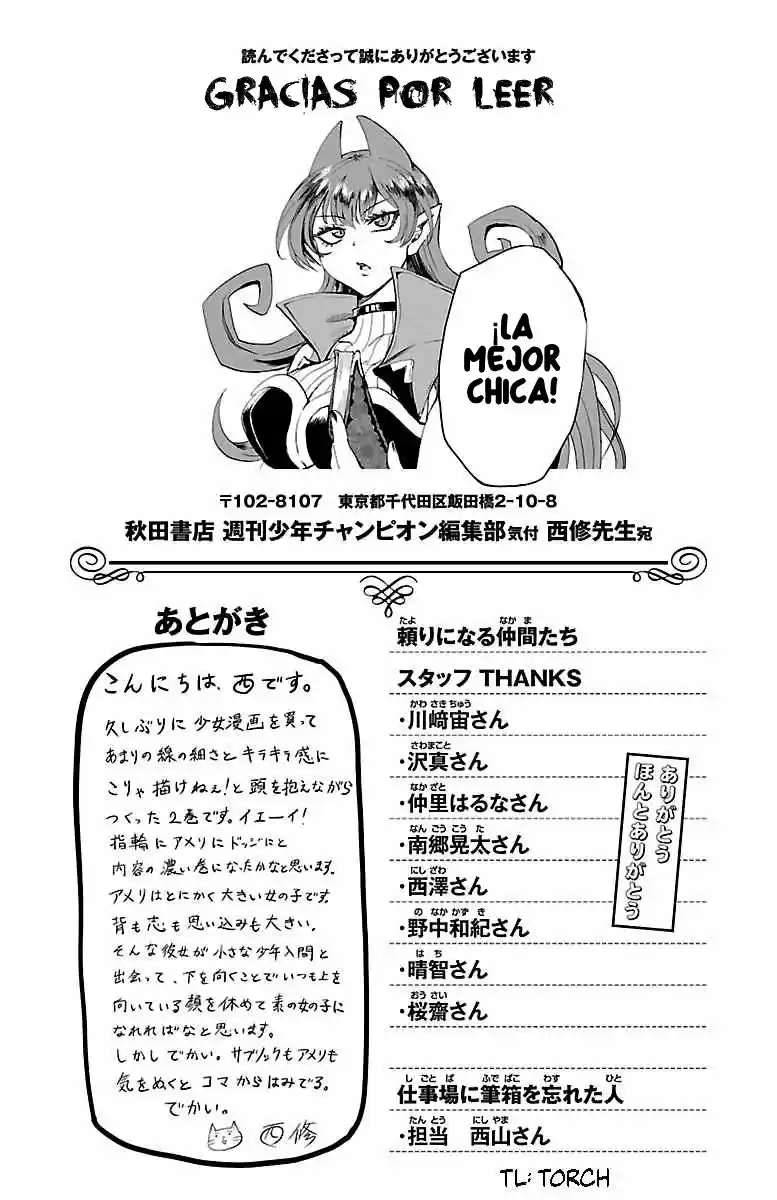 読んでくださって誠にありがとうございます
GRACIAS POR LEER
¡LA
MEJOR
CHICA!
〒102-8107 東京都千代田区飯田橋2-10-8
秋田書店 週刊少年チャンピオン編集部気付 西修先生宛
あとがき
こんにちは、西です。
久しぶりに少女漫画を買って
あまりの線の細さとキラキラ感に
こりゃ描けねぇ!と頭を抱えながら
つくった2巻です。イエーイ!
指輪にアメリにドッジにと
内容の濃い巻になったかなと思います。
アメリはとにかく大きい女の子です。
背も志も思い込みも大きい。
そんな彼女が小さな少年入間と
出会って、下を向くことでいつも上を
向いている顔を休めて素の女の子に
なれればなと思います。
しかしでかい。サブノックもアメリも
気をぬくとコマからはみでる。
でかい。
西修
頼りになる仲間たち
スタッフ THANKS
・川﨑宙さん
・沢真さん
・仲里はるなさん
・南郷晃太さん
・西澤さん
・野中和紀さん
・晴智さん
・桜齋さん
ありがとう
ほんとありがとう
仕事場に筆箱を忘れた人
・担当 西山さん
TL: TORCH